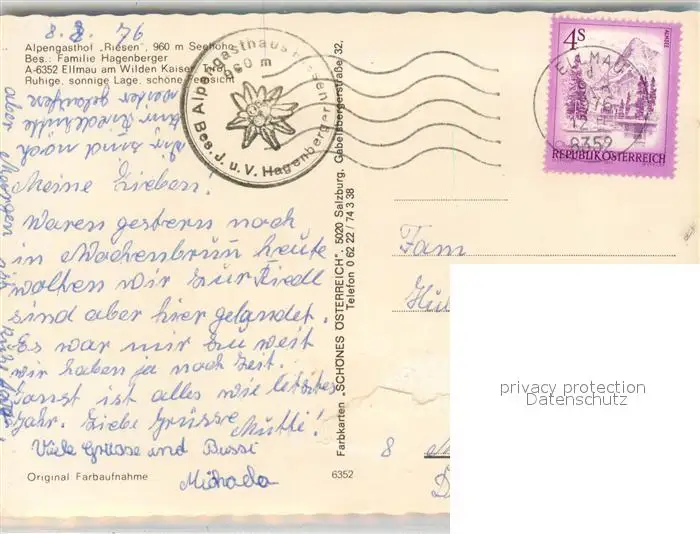 8. 8. 76
Alpengasthof „Riesen", 960 m Seehöhe
Bes.: Familie Hagenberger
A-6352 Ellmau am Wilden Kaiser, Tirol
Ruhige, sonnige Lage, schöne Fernsicht
Alpengasthaus Riesen
960 m
Bes. J. u. V. Hagenberger
4S
ALMSEE
REPUBLIK ÖSTERREICH
ELLMAU
6352
Meine Lieben!
Waren gestern noch
in Wochenbrunn heute
wollten wir zur Riedl
sind aber hier gelandet.
Es war mir zu weit
wir haben ja noch Zeit.
Sonst ist alles wie letztes
Jahr. Liebe Grüsse
Mutti!
Viele Grüsse und Bussi
Michaela
wir sind noch
zur Riedlhütte
weiter gelaufen
aber Morgen
Original Farbaufnahme
6352
Farbkarten „SCHÖNES ÖSTERREICH", 5020 Salzburg, Gabelsbergerstraße 32,
Telefon 0 62 22 / 74 3 38
Fam
8
privacy protection
Datenschutz